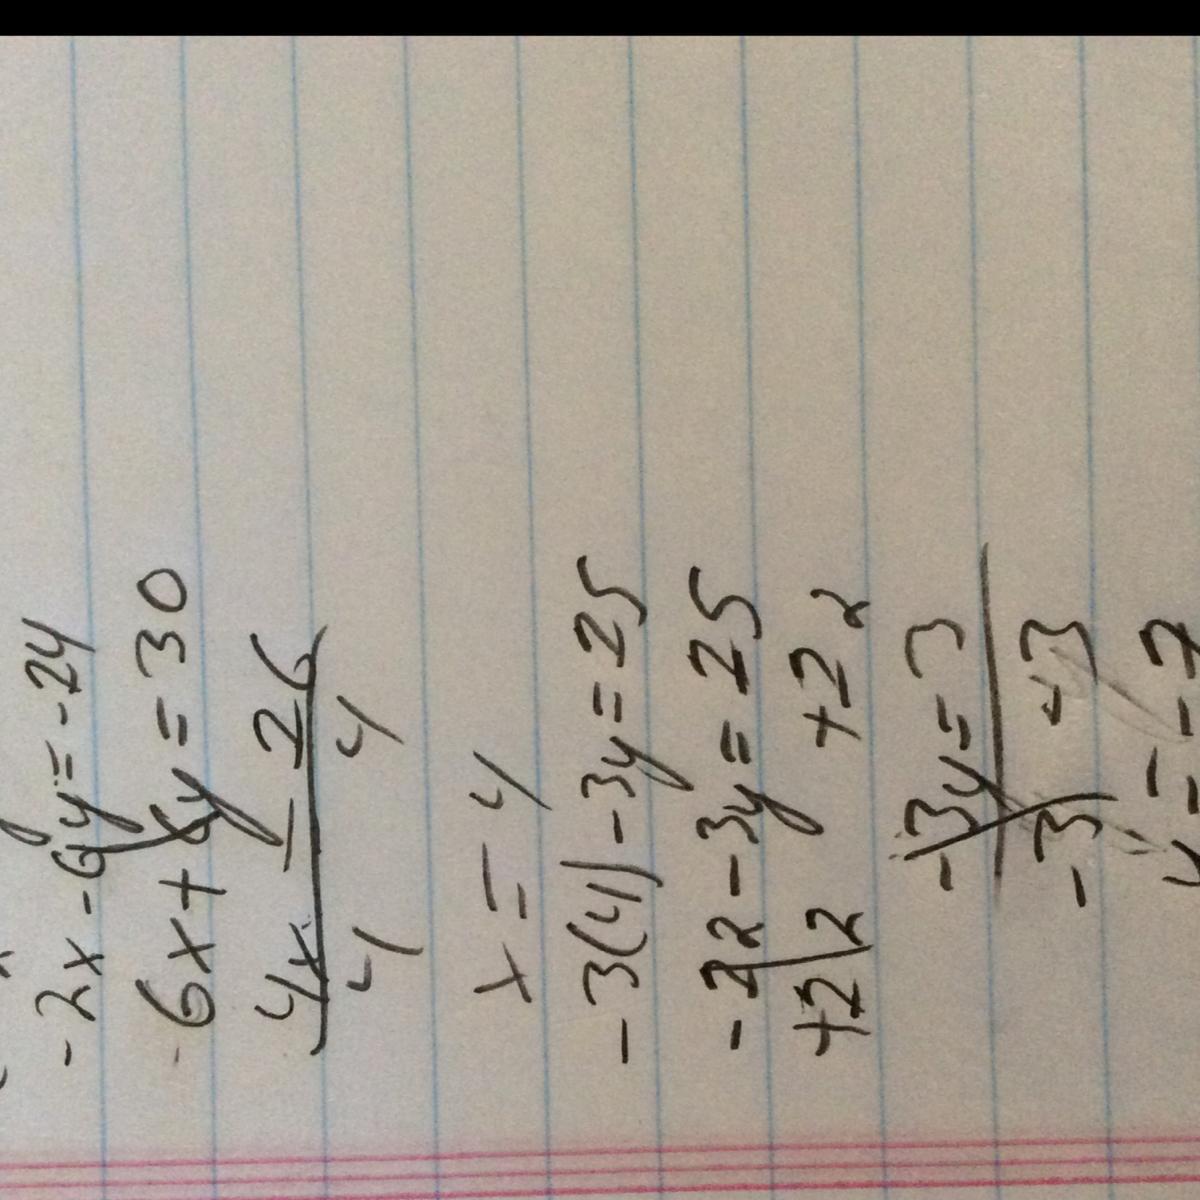 -2x-6y=-24
6x+6y=30
4x = 26
4 4
x=4
-3(4)-3y=25
-22-3y=25
+22 +22
-3y=3
-3 -3
y=-7